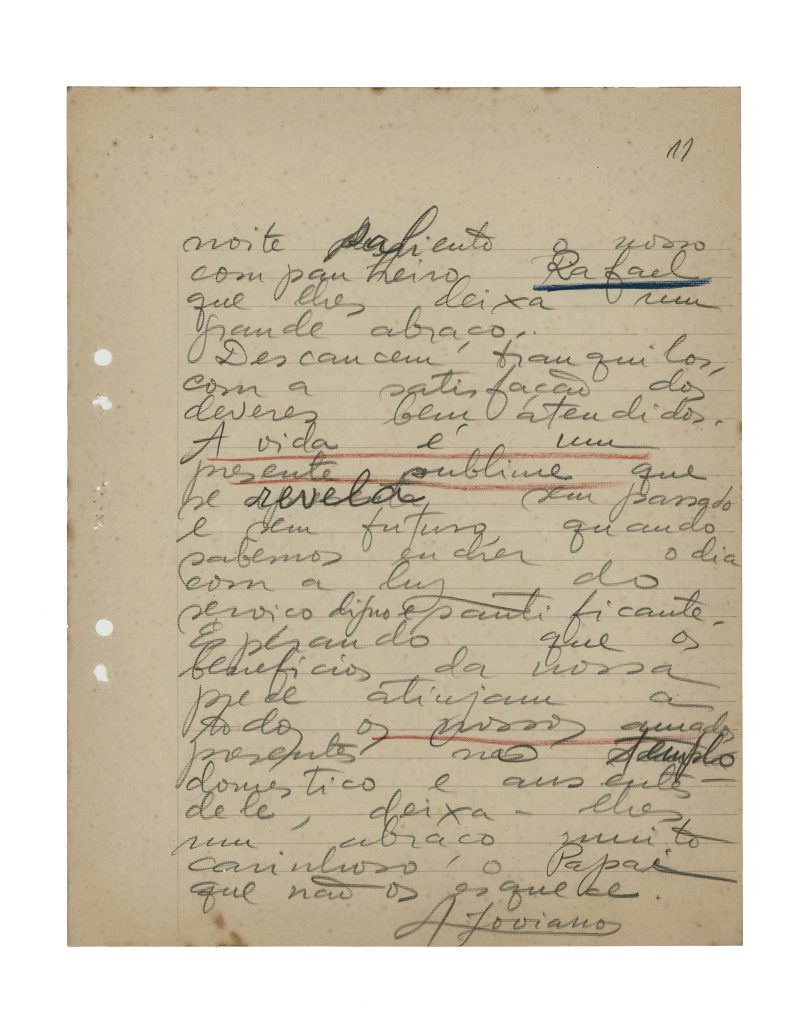 11
noite saliento o nosso
companheiro Rafael
que lhes deixa um
grande abraço..
Descancem, tranquilos,
com a satisfação dos
deveres bem atendidos.
A vida é um
presente sublime que
se revela sem passado
e sem futuro, quando
sabemos encher o dia
com a luz do
serviço digno e santificante.
Esperando que os
beneficios da nossa
prece atinjam a
todos os nossos amados
presentes no templo
domestico e ausentes
dele, deixa-lhes
um abraço muito
carinhoso, o Papai
que não os esquece.
A Joviano